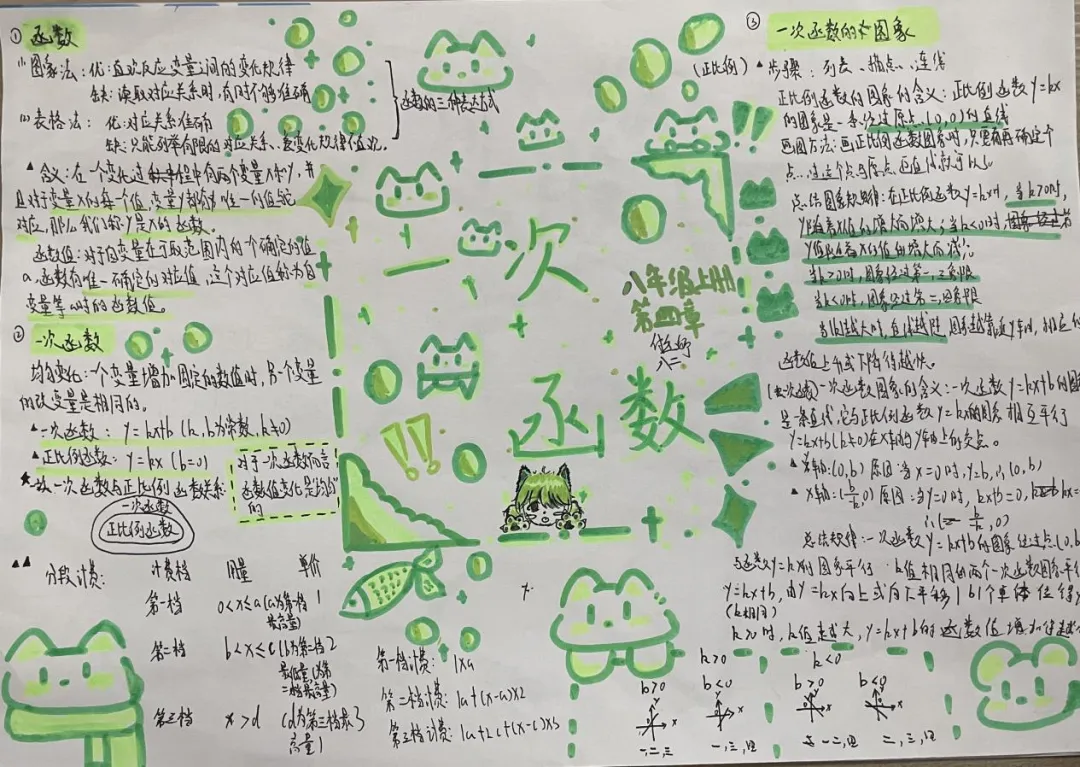 ① 函数
(1) 图象法：优：直观反应变量之间的变化规律
缺：读取对应关系时，有时不够准确
(2) 表格法：优：对应关系准确
缺：只能列举有限的对应关系、变化规律不直观。
函数的三种表达方式
▲含义：在一个变化过程中有两个变量x和y，并
且对于变量x的每个值，变量y都有唯一的值与它
对应，那么我们称y是x的函数。
函数值：对于自变量在可取范围内的一个确定的值
a，函数有唯一确定的对应值，这个对应值称为自
变量等a时的函数值。
② 一次函数
均匀变化：一个变量增加固定的数值时，另一个变量
的改变量是相同的。
▲一次函数：y=kx+b (k,b为常数,k≠0)
▲正比例函数：y=kx (b=0)
一次函数与正比例函数关系
一次函数
正比例函数
对于一次函数而言，
函数值变化是均匀
的
▲▲ 分段计费：
计费档 用量 单价
第一档 0<x≤a (a为第一档最高量) 1
第二档 b<x≤c 2
第三档 x>d 3
第一档计费：1xa
第二档计费：1a+(x-a)x2
第三档计费：1a+2c+(x-c)x3
一次
函数
八年级上册
第四章
八二
③ 一次函数的图象
(正比例) ▲步骤：列表、描点、连线
正比例函数的图象的含义：正比例函数y=kx
的图象是一条经过原点(0,0)的直线
画图方法：画正比例函数图象时，只需再确定个
点，过这个点与原点画直线就可以
总结图象规律：在正比例函数y=kx中，当k>0时，
y随着x值的增大而增大；当k<0时，
y值随着x的值的增大而减小
当k>0时，图象经过第一、三象限
当k<0时，图象经过第二、四象限
当|k|越大时，直线越陡，图象越靠近y轴，相应的
函数值上升或下降得越快。
(一次函数)一次函数图象的含义：一次函数y=kx+b的图象
是一条直线，它与正比例函数y=kx的图象相互平行
y=kx+b(k≠0)在x轴与y轴上的交点。
▲y轴：(0,b) 原因：当x=0时，y=b，∴(0,b)
▲x轴：(-b/k,0) 原因：当y=0时，kx+b=0，kx=
∴(-b/k,0)
总结规律：一次函数y=kx+b的图象经过点(0,b
与函数y=kx的图象平行，k值相同的两个一次函数图象平行
y=kx+b，由y=kx向上或向下平移|b|个单位得
(k相同)
k>0时，k值越大，y=kx+b的函数值增加得越
k>0 k<0
b>0 b<0 b>0 b<0
y x y x y x y x
一,二,三 一,三,四 一,二,四 二,三,四